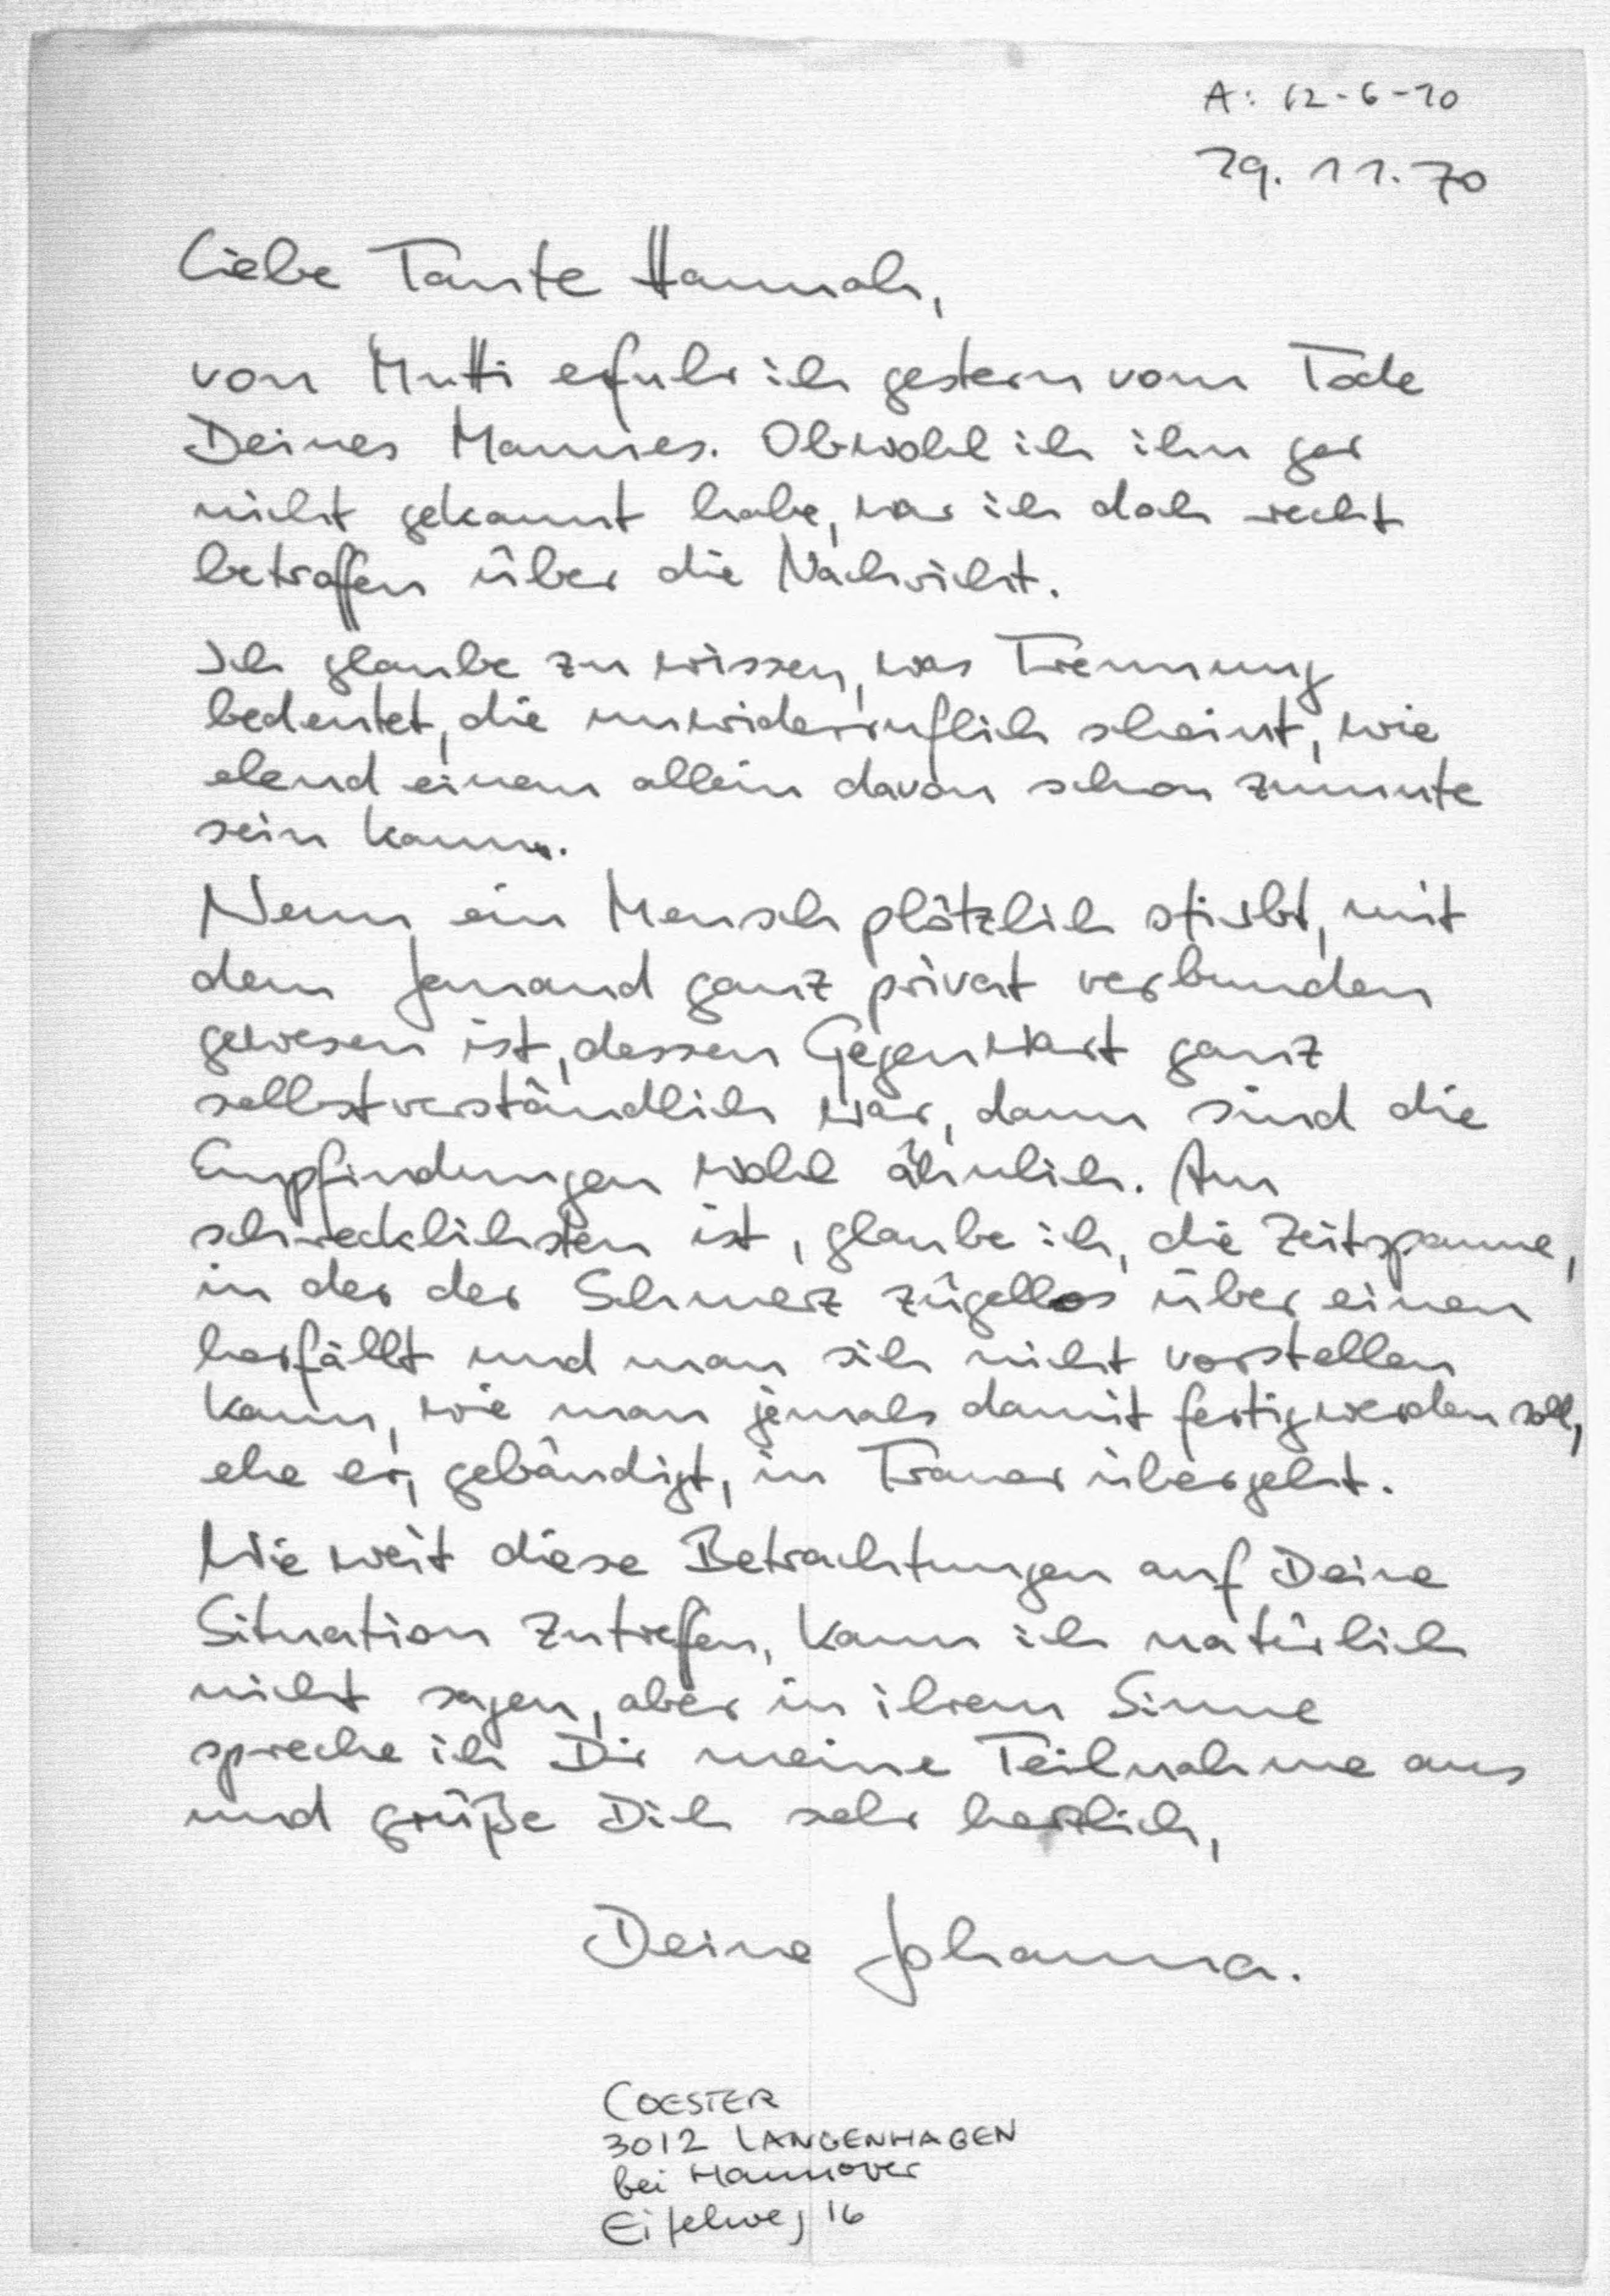 A: 12-6-70
29. 11. 70
Liebe Tante Hannah,
von Mutti erfuhr ich gestern vom Tode
Deines Mannes. Obwohl ich ihn gar
nicht gekannt habe, war ich doch recht
betroffen über die Nachricht.
Ich glaube zu wissen, was Trennung
bedeutet, die unwiderruflich scheint, wie
elend einem allein davon schon zumute
sein kann.
Wenn ein Mensch plötzlich stirbt, mit
dem jemand ganz privat verbunden
gewesen ist, dessen Gegenwart ganz
selbstverständlich war, dann sind die
Empfindungen wohl ähnlich. Am
schrecklichsten ist, glaube ich, die Zeitspanne,
in der der Schmerz zügellos über einen
herfällt und man sich nicht vorstellen
kann, wie man jemals damit fertigwerden soll,
ehe er, gebändigt, in Trauer übergeht.
Wie weit diese Betrachtungen auf Deine
Situation zutreffen, kann ich natürlich
nicht sagen, aber in ihrem Sinne
spreche ich Dir meine Teilnahme aus
und grüße Dich sehr herzlich,
Deine Johanna.
COESTER
3012 LANGENHAGEN
bei Hannover
Eifelweg 16